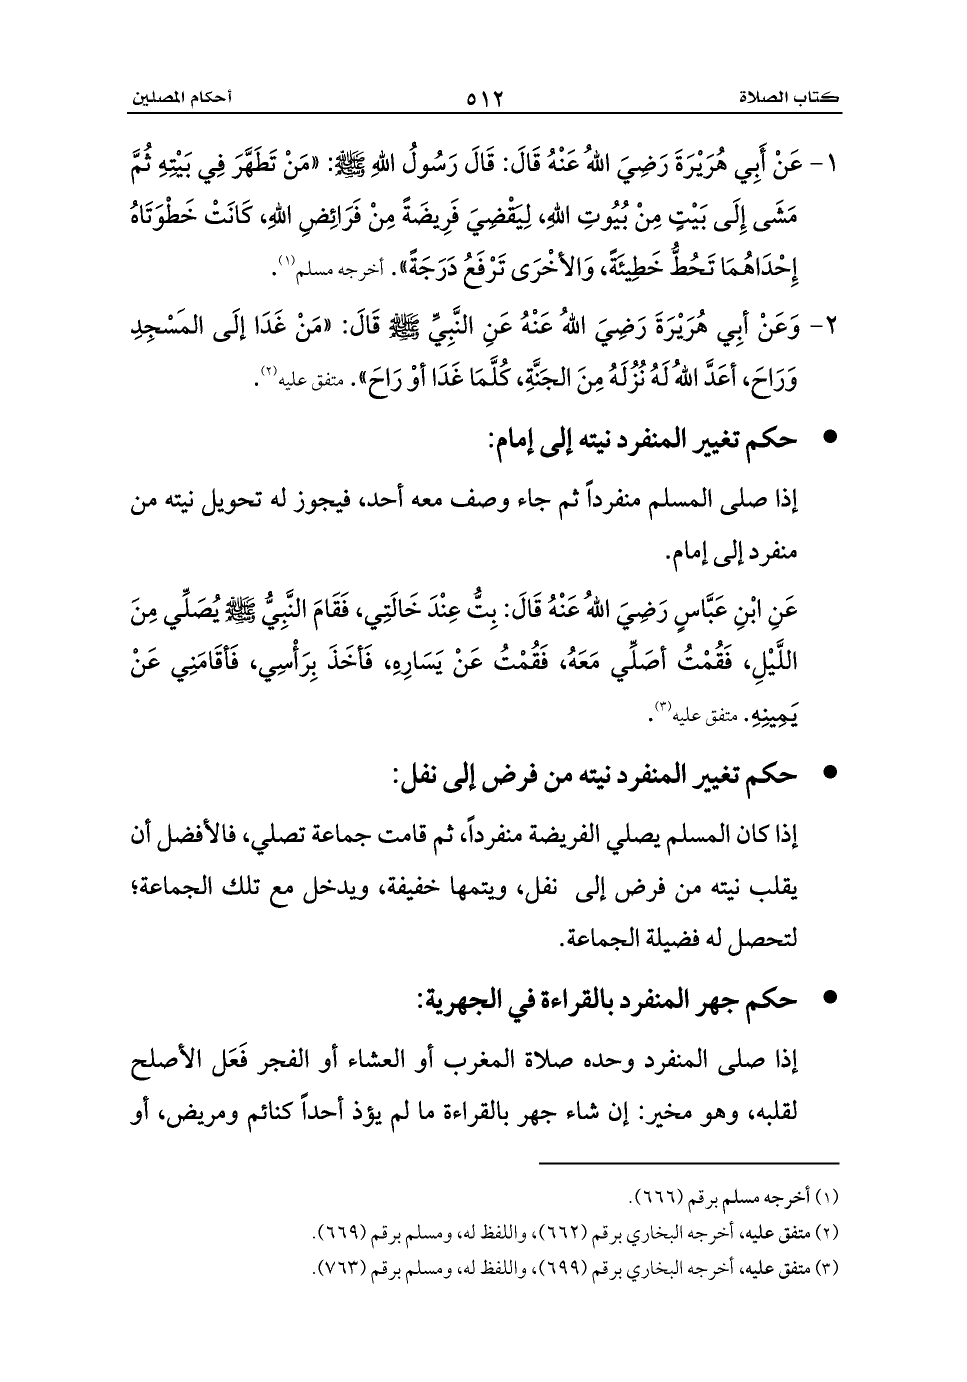 كتاب الصلاة ٥١٢ أحكام المصلين
١- عَنْ أَبِي هُرَيْرَةَ رَضِيَ اللهُ عَنْهُ قَالَ: قَالَ رَسُولُ اللهِ ﷺ: «مَنْ تَطَهَّرَ فِي بَيْتِهِ ثُمَّ
مَشَى إِلَى بَيْتٍ مِنْ بُيُوتِ اللهِ، لِيَقْضِيَ فَرِيضَةً مِنْ فَرَائِضِ اللهِ، كَانَتْ خَطْوَتَاهُ
إِحْدَاهُمَا تَحُطُّ خَطِيئَةً، وَالأخْرَى تَرْفَعُ دَرَجَةً». أخرجه مسلم(١).
٢- وَعَنْ أبِي هُرَيْرَةَ رَضِيَ اللهُ عَنْهُ عَنِ النَّبِيِّ ﷺ قَالَ: «مَنْ غَدَا إلَى المَسْجِدِ
وَرَاحَ، أعَدَّ اللهُ لَهُ نُزُلَهُ مِنَ الجَنَّةِ، كُلَّمَا غَدَا أوْ رَاحَ». متفق عليه(٢).
● حكم تغيير المنفرد نيته إلى إمام:
إذا صلى المسلم منفرداً ثم جاء وصف معه أحد، فيجوز له تحويل نيته من
منفرد إلى إمام.
عَنِ ابْنِ عَبَّاسٍ رَضِيَ اللهُ عَنْهُ قَالَ: بِتُّ عِنْدَ خَالَتِي، فَقَامَ النَّبِيُّ ﷺ يُصَلِّي مِنَ
اللَّيْلِ، فَقُمْتُ أصَلِّي مَعَهُ، فَقُمْتُ عَنْ يَسَارِهِ، فَأخَذَ بِرَأْسِي، فَأقَامَنِي عَنْ
يَمِينِهِ. متفق عليه(٣).
● حكم تغيير المنفرد نيته من فرض إلى نفل:
إذا كان المسلم يصلي الفريضة منفرداً، ثم قامت جماعة تصلي، فالأفضل أن
يقلب نيته من فرض إلى نفل، ويتمها خفيفة، ويدخل مع تلك الجماعة؛
لتحصل له فضيلة الجماعة.
● حكم جهر المنفرد بالقراءة في الجهرية:
إذا صلى المنفرد وحده صلاة المغرب أو العشاء أو الفجر فَعَل الأصلح
لقلبه، وهو مخير: إن شاء جهر بالقراءة ما لم يؤذ أحداً كنائم ومريض، أو
(١) أخرجه مسلم برقم (٦٦٦).
(٢) متفق عليه، أخرجه البخاري برقم (٦٦٢)، واللفظ له، ومسلم برقم (٦٦٩).
(٣) متفق عليه، أخرجه البخاري برقم (٦٩٩)، واللفظ له، ومسلم برقم (٧٦٣).